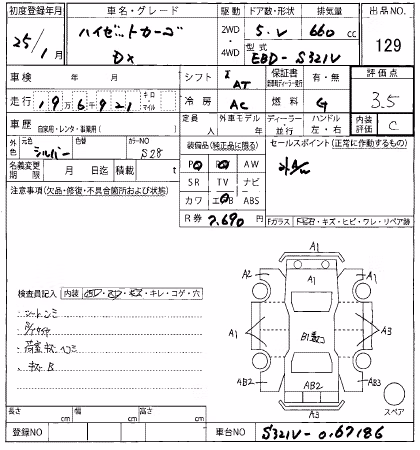 初度登録年月 車名・グレード 駆動 ドア数・形状 排気量 出品NO.
25/1月 ハイゼットカーゴ DX 2WD・4WD 5.V 660 cc 129
型式 EBD-S321V
車検 年 月 シフト AT 保証書 有・無 評価点
走行 19万6千921 キロ マイル 冷房 AC 燃料 G 3.5
車歴 自家用・レンタ・事業用( ) 定員 人 外車モデル 年 ディーラー 並行 ハンドル 左・右 内装評価 C
外色 元色 シルバー 色替 カラーNO S28 装備品(純正品に限る) セールスポイント(正常に作動するもの)
名義変更期限 月 日迄 積載 t PS PW AW
注意事項(欠品・修復・不具合箇所および状態) SR TV ナビ
カワ エアB ABS
R券 7,690 Fガラス トビ石・キズ・ヒビ・ワレ・リペア跡
検査員記入 内装 ・キレ・コゲ・穴
シートシミ
荷室キズヘコミ
キズB
A1
A2 A1
A1 B1 A3
AB2 AB2 AB3
A3
スペア
長さ cm 幅 cm 高さ cm
登録NO 車台NO S321V-0167186